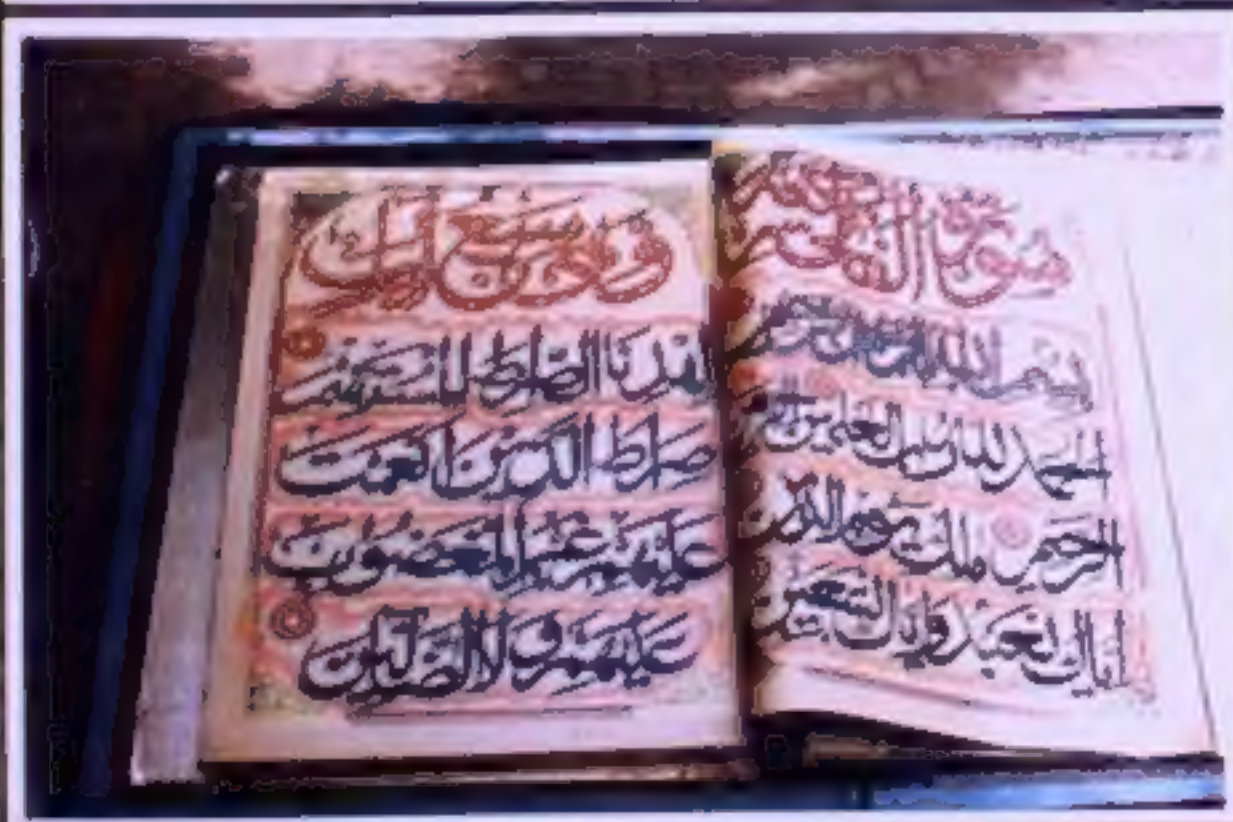 سورة الفاتحة
بسم الله الرحمن الرحيم
الحمد لله رب العلمين
الرحيم ملك يوم الدين
اياك نعبد واياك نستعين
وهي سبع ايات
اهدنا الصراط المستقيم
صراط الذين انعمت
عليهم غير المغضوب
عليهم ولا الضالين